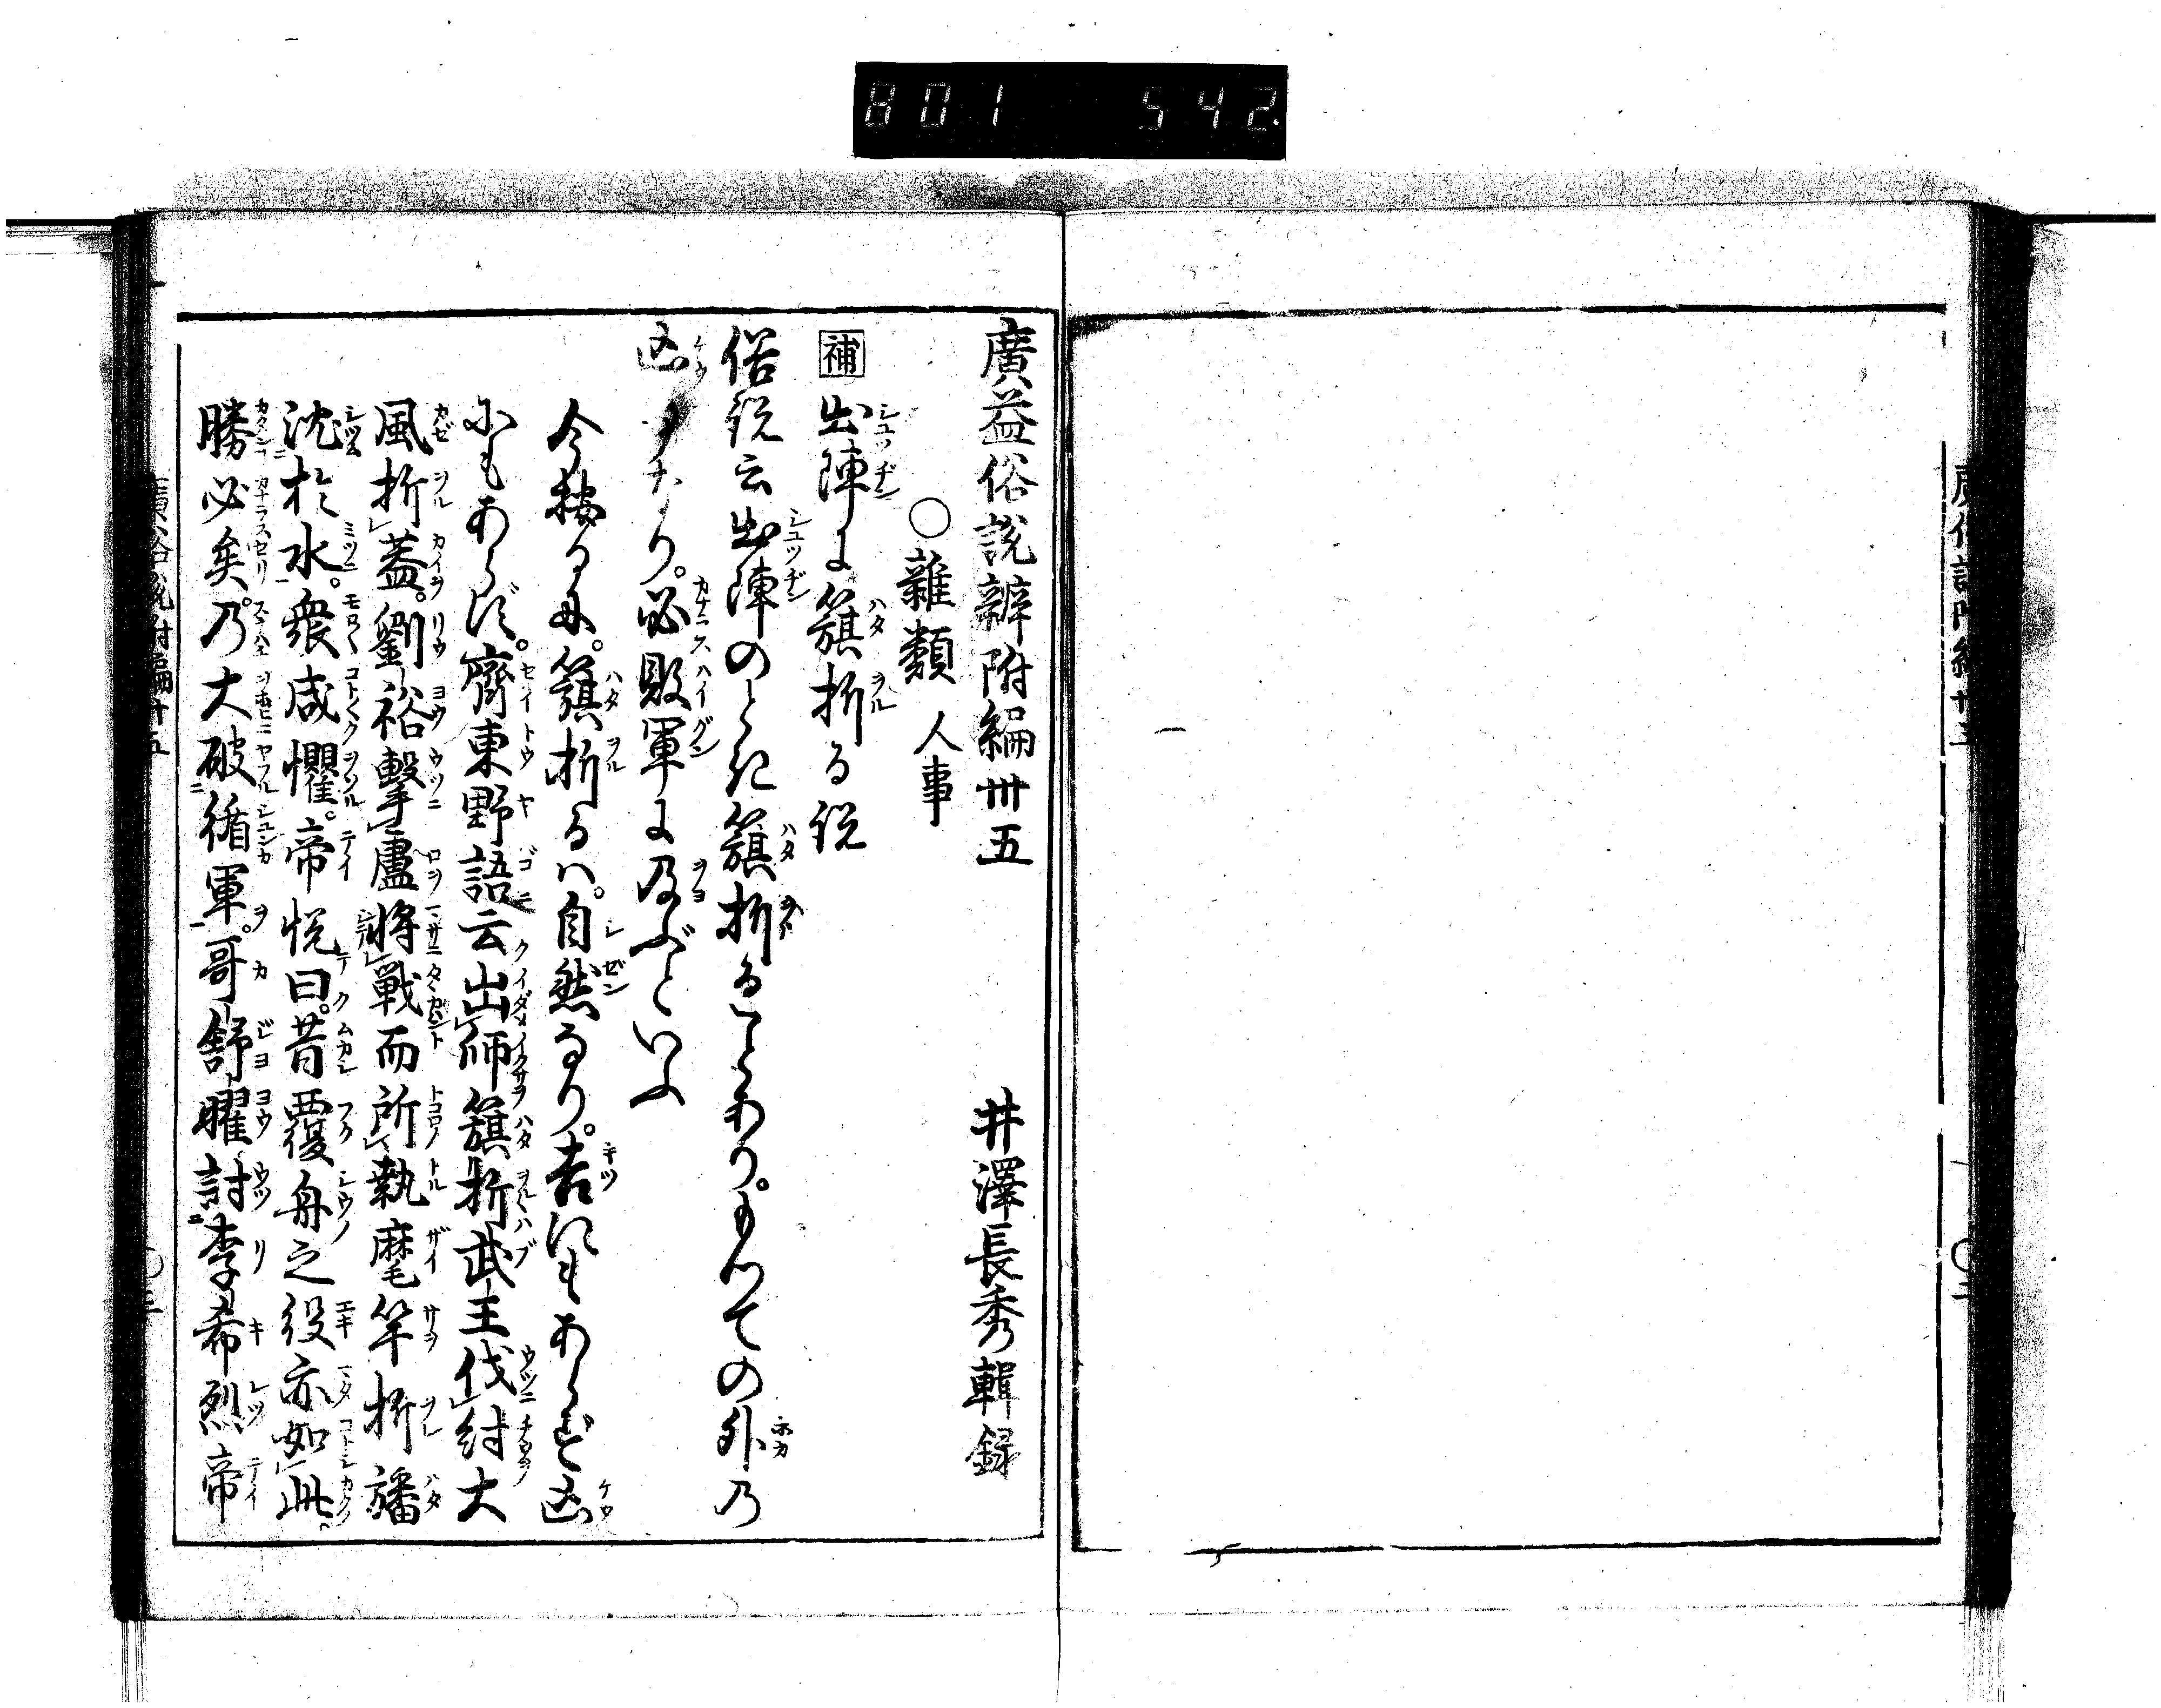 801 542.
廣益俗説辨附編卅五 井澤長秀輯録
○雜類 人事
補 出陣に籏折る説
俗説云出陣のとき籏折ることあり。もつての外乃
凶なり。必敗軍に及ぶといふ
今按るに。籏折るハ。自然なり。吉にもあらず凶
にもあらず。齊東野語云出師籏折武王伐紂大
風折蓋。劉裕擊盧將戰而所執麾竿折旛
沈於水。衆咸懼。帝悦曰。昔覆舟之役亦如此。
勝必矣。乃大破循軍。哥舒曜討李希烈帝